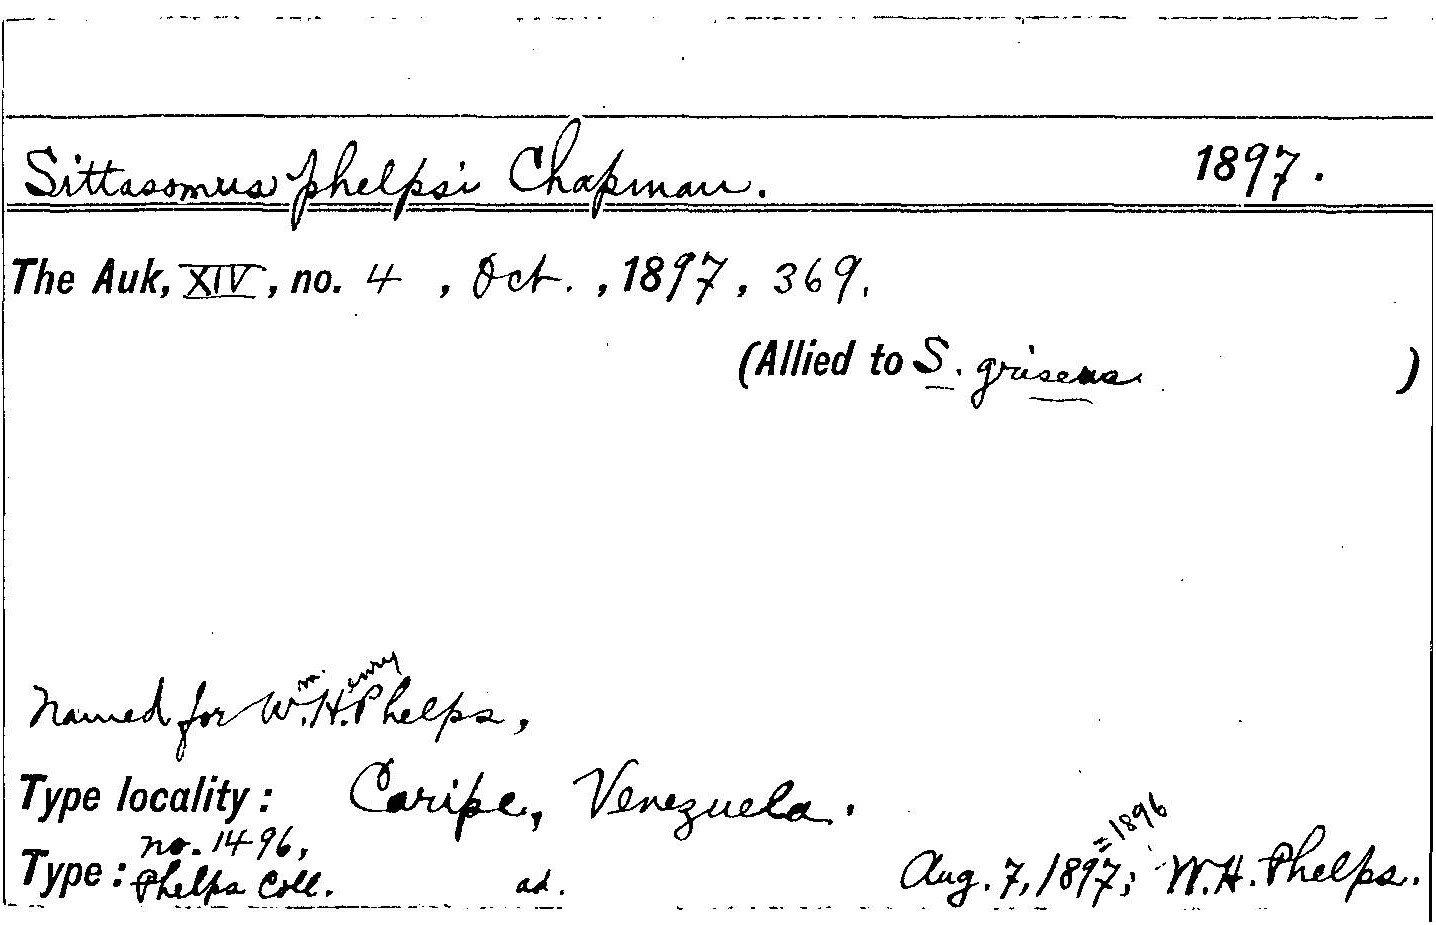 Sittasomus phelpsi Chapman. 1897.
The Auk, XIV, no. 4, Oct., 1897, 369.
(Allied to S. griseus. )
m. enry
Named for W. H. Phelps,
Type locality: Caripe, Venezuela.
no. 1496, = 1896
Type: Phelps Coll. ad. Aug. 7, 1897; W. H. Phelps.